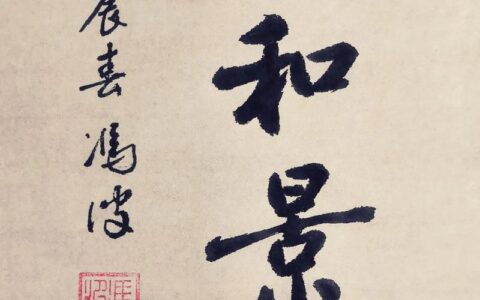 和景
辰春馮